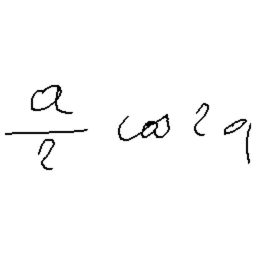 \frac{a}{2} \cos 2 q